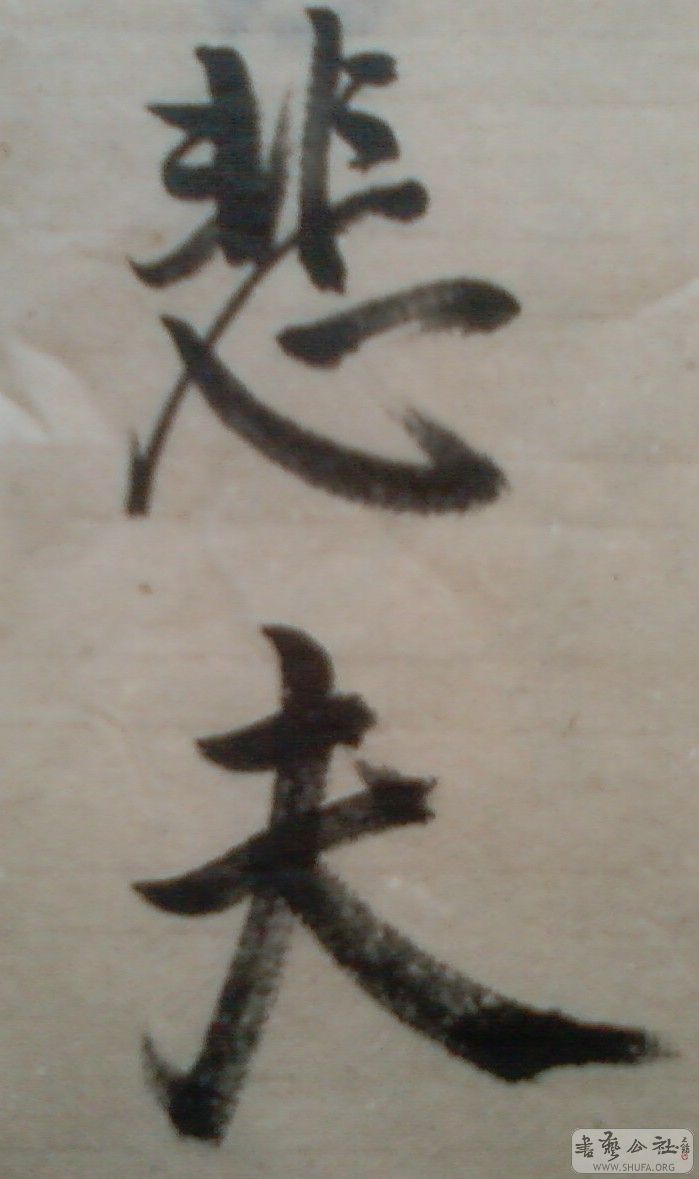 悲夫
書藝公社
WWW.SHUFA.ORG